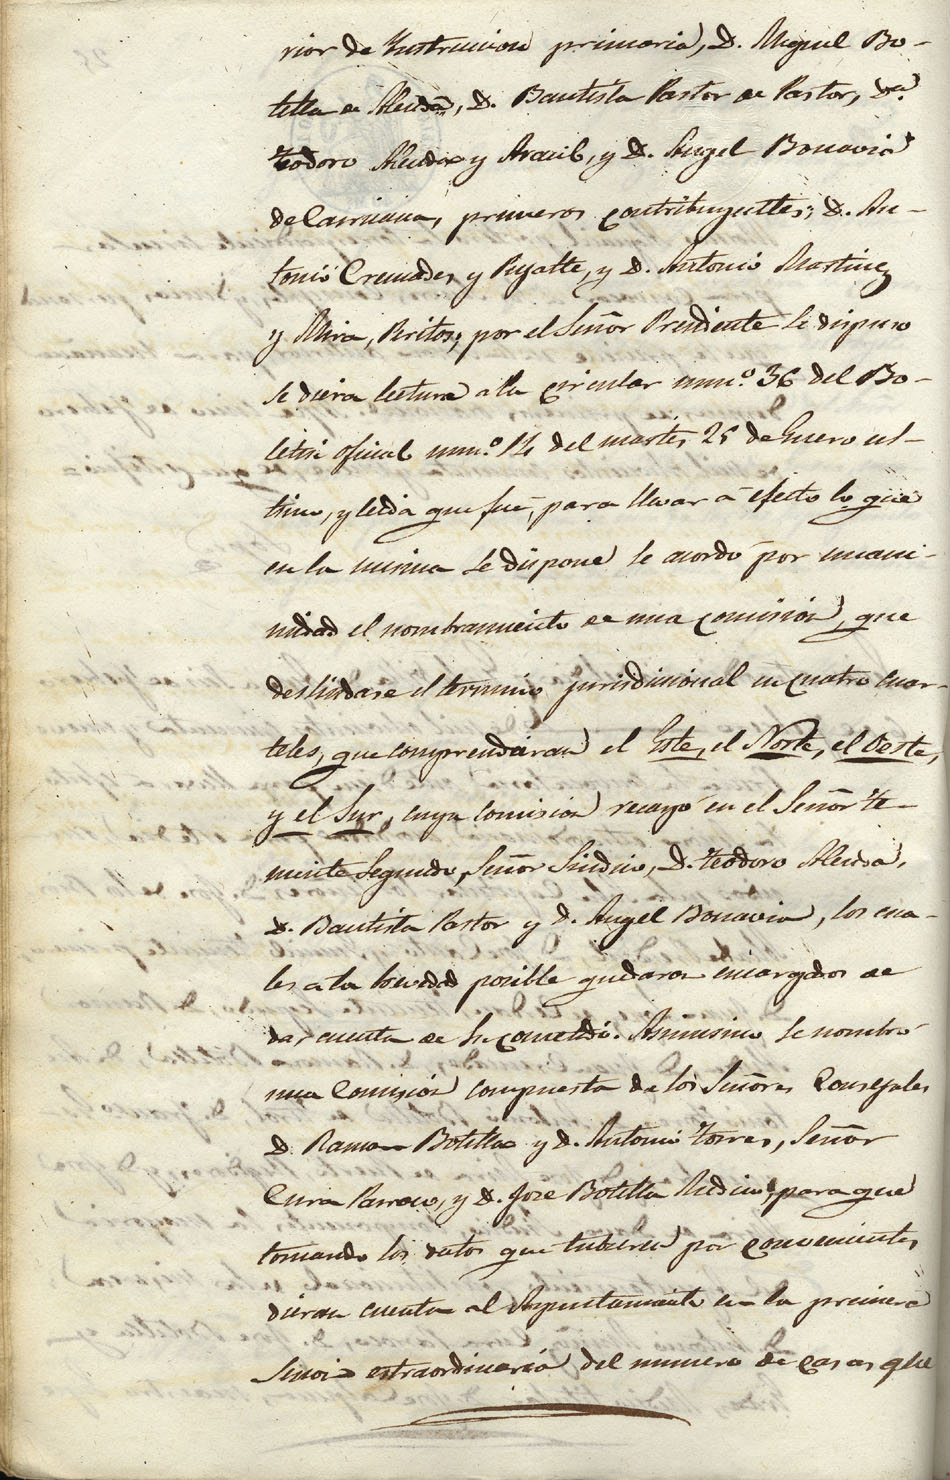 rior de Instrucion primaria, D. Miguel Bo-
tella de Alenda, D. Bautista Pastor de Pastor, Dn
Teodoro Alenda y Aracil, y D. Angel Bonavia
de Carricana, primeros contribuyentes; D. An-
tonio Cremades y Pujalte, y D. Antonio Martinez
y Mira, Peritos; por el Señor Presidente se dispuso
se diera lectura a la circular num.o 36 del Bo-
letin oficial num.o 12 del martes 25 de Enero ul-
timo, y leida que fué, para llevar á efecto lo que
en la misma se dispone se acordó por unani-
midad el nombramiento de una comision, que
deslindase el termino jurisdicional en cuatro cuar-
teles, que comprendieran el Este, el Norte, el Oeste,
y el Sur, cuya comision recayó en el Señor te-
niente Segundo, Señor Sindico, D. Teodoro Alenda,
D. Bautista Pastor y D. Angel Bonavia, los cua-
les a la brevedad posible quedaron encargados de
dar cuenta de su cometido. Asimismo se nombró
una Comision compuesta de los Señores Consejales
D. Ramon Botella y D. Antonio Torres, Señor
Cura Parroco, y D. Jose Botella Medico, para que
tomando los datos que tubieran por convenientes
dieran cuenta al Ayuntamiento en la primera
Sesion estraordinaria del numero de casas que